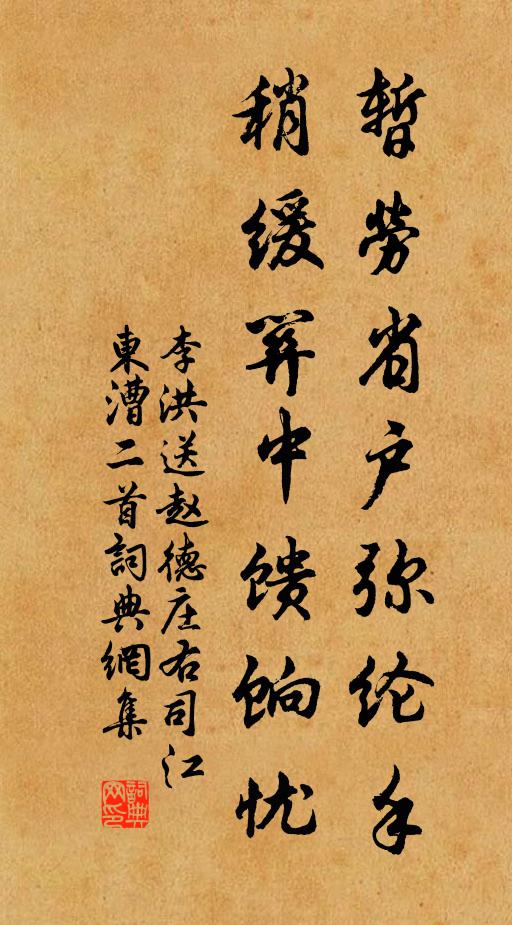 暫勞省户弥纶手
稍缓関中馈饷忧
李洪送赵德庄右司江
東漕二首詞典網集
詞典
网印